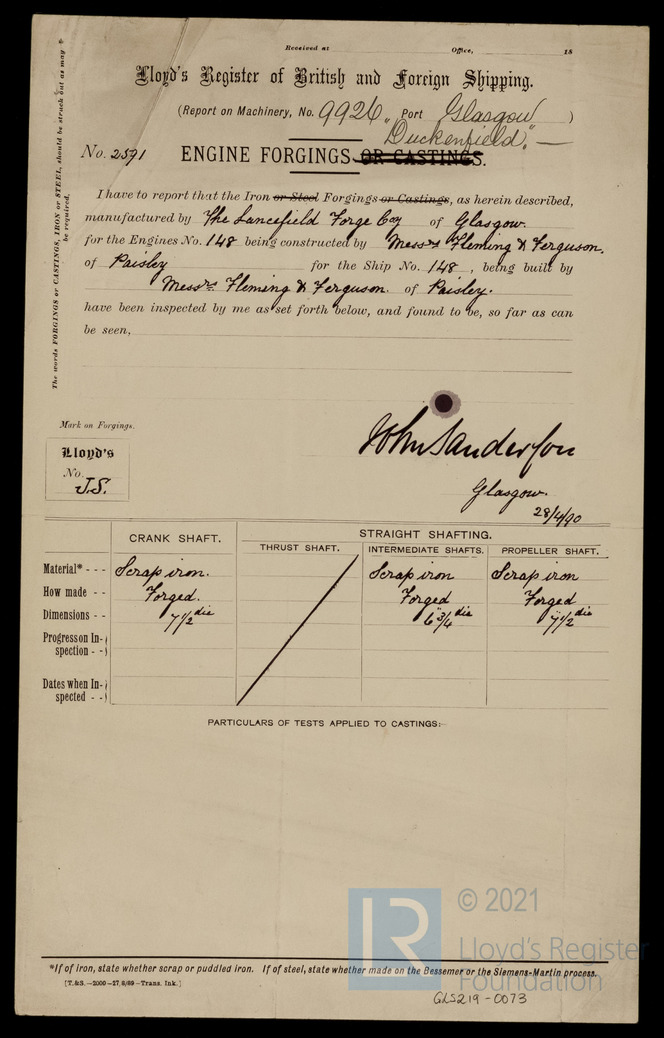 Received at Office, 18
Lloyd's Register of British and Foreign Shipping.
(Report on Machinery, No. 9926, Port Glasgow )
"Duckenfield," —
No. 2591 ENGINE FORGINGS OR CASTINGS.
The words FORGINGS or CASTINGS, IRON or STEEL, should be struck out as may
be required.
I have to report that the Iron or Steel Forgings or Castings, as herein described,
manufactured by The Lancefield Forge Coy of Glasgow.
for the Engines No. 148 being constructed by Messrs Fleming & Ferguson.
of Paisley for the Ship No. 148, being built by
Messrs Fleming & Ferguson. of Paisley.
have been inspected by me as set forth below, and found to be, so far as can
be seen,
Mark on Forgings.
Lloyd's
No.
J.S.
John Sanderson
Glasgow.
28/4/90
CRANK SHAFT. STRAIGHT SHAFTING.
THRUST SHAFT. INTERMEDIATE SHAFTS. PROPELLER SHAFT.
Material* - - - Scrap iron. Scrap iron Scrap iron
How made - - Forged. Forged Forged
Dimensions - - 7 1/2 dia 6 3/4" dia 7 1/2" dia
Progress on In-
spection - -
Dates when In-
spected - -
PARTICULARS OF TESTS APPLIED TO CASTINGS:—
© 2021
LR
Lloyd's Register
Foundation
*If of iron, state whether scrap or puddled iron. If of steel, state whether made on the Bessemer or the Siemens-Martin process.
[T.&S.—2000—27/8/89—Trans. Ink.]
GLS219-0073